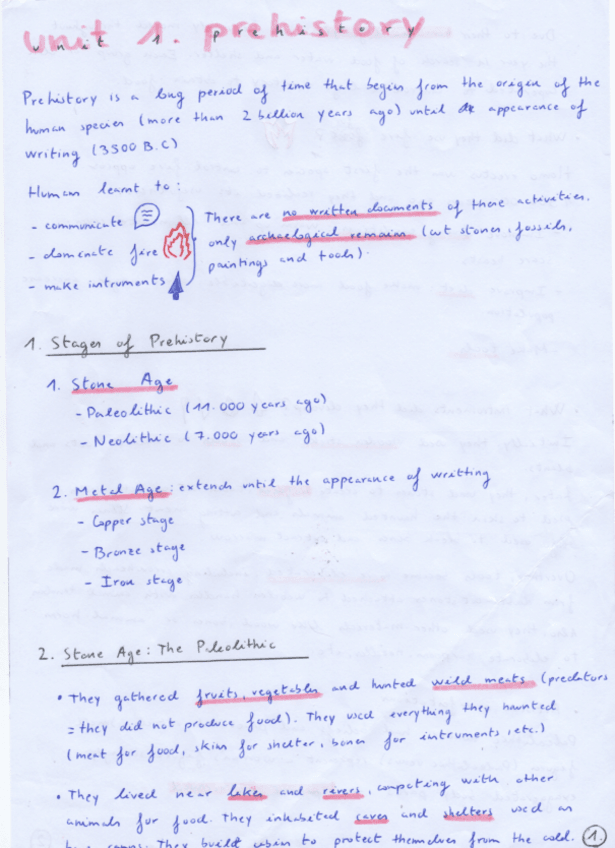 unit 1. prehistory
Prehistory is a long period of time that began from the origin of the
human species (more than 2 billion years ago) until the appearance of
writing (3300 B.C)
Human learnt to:
- communicate
- dominate fire
- make instruments
There are no written documents of these activities.
only archaelogical remains (cut stones, fossils,
paintings and tools).
1. Stages of Prehistory
1. Stone Age
- Paleolithic (11.000 years ago)
- Neolithic (7.000 years ago)
2. Metal Age: extends until the appearance of wratting
- Copper stage
- Bronze stage
- Iron stage
2. Stone Age: The Paleolithic
• They gathered fruits, vegetables and hunted wild meats (predators
= they did not produce food). They used everything they haunted
(meat for food, skins for shelter, bones for instruments, etc.)
• They lived near lakes and rivers, competing with other
animals for food. They inhabited caves and shelters used as
camps. They build cabin to protect themselves from the cold.
1.